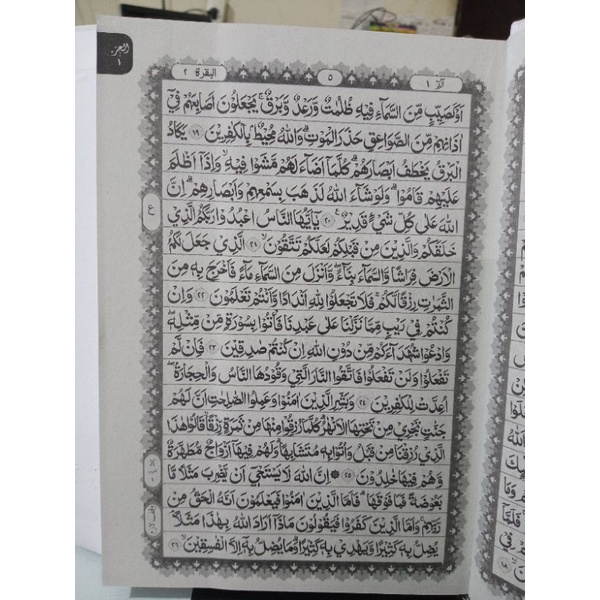 الجزء
١
البقرة ٢
٥
الۤمّۤ ١
اَوْ كَصَيِّبٍ مِّنَ السَّمَاۤءِ فِيْهِ ظُلُمٰتٌ وَّرَعْدٌ وَّبَرْقٌۚ يَجْعَلُوْنَ اَصَابِعَهُمْ فِيْٓ
اٰذَانِهِمْ مِّنَ الصَّوَاعِقِ حَذَرَ الْمَوْتِۗ وَاللّٰهُ مُحِيْطٌۢ بِالْكٰفِرِيْنَ ١٩ يَكَادُ
الْبَرْقُ يَخْطَفُ اَبْصَارَهُمْۗ كُلَّمَآ اَضَاۤءَ لَهُمْ مَّشَوْا فِيْهِۙ وَاِذَآ اَظْلَمَ
عَلَيْهِمْ قَامُوْاۗ وَلَوْ شَاۤءَ اللّٰهُ لَذَهَبَ بِسَمْعِهِمْ وَاَبْصَارِهِمْۗ اِنَّ
اللّٰهَ عَلٰى كُلِّ شَيْءٍ قَدِيْرٌ ٢٠ يٰٓاَيُّهَا النَّاسُ اعْبُدُوْا رَبَّكُمُ الَّذِيْ
خَلَقَكُمْ وَالَّذِيْنَ مِنْ قَبْلِكُمْ لَعَلَّكُمْ تَتَّقُوْنَۙ ٢١ الَّذِيْ جَعَلَ لَكُمُ
الْاَرْضَ فِرَاشًا وَّالسَّمَاۤءَ بِنَاۤءًۖ وَّاَنْزَلَ مِنَ السَّمَاۤءِ مَاۤءً فَاَخْرَجَ بِهٖ مِنَ
الثَّمَرٰتِ رِزْقًا لَّكُمْۚ فَلَا تَجْعَلُوْا لِلّٰهِ اَنْدَادًا وَّاَنْتُمْ تَعْلَمُوْنَ ٢٢ وَاِنْ
كُنْتُمْ فِيْ رَيْبٍ مِّمَّا نَزَّلْنَا عَلٰى عَبْدِنَا فَأْتُوْا بِسُوْرَةٍ مِّنْ مِّثْلِهٖۖ
وَادْعُوْا شُهَدَاۤءَكُمْ مِّنْ دُوْنِ اللّٰهِ اِنْ كُنْتُمْ صٰدِقِيْنَ ٢٣ فَاِنْ لَّمْ
تَفْعَلُوْا وَلَنْ تَفْعَلُوْا فَاتَّقُوا النَّارَ الَّتِيْ وَقُوْدُهَا النَّاسُ وَالْحِجَارَةُۖ
اُعِدَّتْ لِلْكٰفِرِيْنَ ٢٤ وَبَشِّرِ الَّذِيْنَ اٰمَنُوْا وَعَمِلُوا الصّٰلِحٰتِ اَنَّ لَهُمْ
جَنّٰتٍ تَجْرِيْ مِنْ تَحْتِهَا الْاَنْهٰرُۗ كُلَّمَا رُزِقُوْا مِنْهَا مِنْ ثَمَرَةٍ رِّزْقًاۙ قَالُوْا هٰذَا
الَّذِيْ رُزِقْنَا مِنْ قَبْلُ وَاُتُوْا بِهٖ مُتَشَابِهًاۗ وَلَهُمْ فِيْهَآ اَزْوَاجٌ مُّطَهَّرَةٌ
وَّهُمْ فِيْهَا خٰلِدُوْنَ ٢٥ ۞ اِنَّ اللّٰهَ لَا يَسْتَحْيٖٓ اَنْ يَّضْرِبَ مَثَلًا مَّا
بَعُوْضَةً فَمَا فَوْقَهَاۗ فَاَمَّا الَّذِيْنَ اٰمَنُوْا فَيَعْلَمُوْنَ اَنَّهُ الْحَقُّ مِنْ
رَّبِّهِمْۚ وَاَمَّا الَّذِيْنَ كَفَرُوْا فَيَقُوْلُوْنَ مَاذَآ اَرَادَ اللّٰهُ بِهٰذَا مَثَلًاۘ
يُضِلُّ بِهٖ كَثِيْرًا وَّيَهْدِيْ بِهٖ كَثِيْرًاۗ وَمَا يُضِلُّ بِهٖٓ اِلَّا الْفٰسِقِيْنَۙ ٢٦
ع